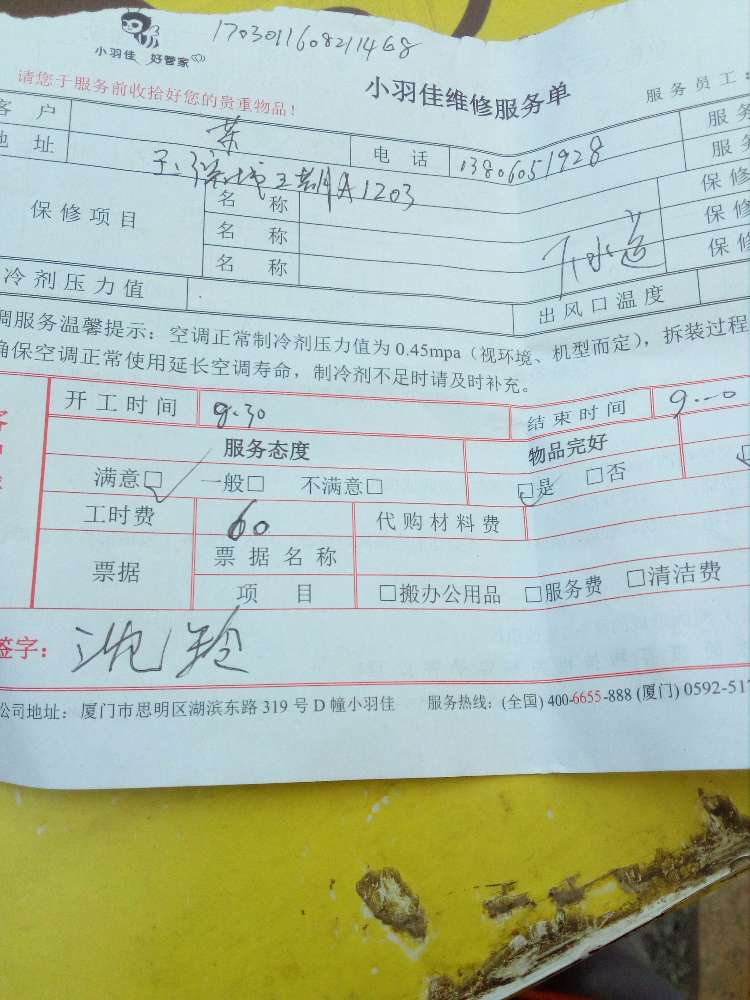 1703011608211468
小羽佳 好管家
请您于服务前收拾好您的贵重物品!
小羽佳维修服务单
服务员工:
客户 电话 13806051928 服务
地址 A1203 服务
保修项目 名称 保修
名称 保修
名称 下水道 保修
冷剂压力值 出风口温度
调服务温馨提示:空调正常制冷剂压力值为 0.45mpa(视环境、机型而定),拆装过程
确保空调正常使用延长空调寿命,制冷剂不足时请及时补充。
开工时间 9.30 结束时间
服务态度 物品完好
满意□ 一般□ 不满意□ □是 □否
工时费 60 代购材料费
票据 票据名称
项目 □搬办公用品 □服务费 □清洁费
签字:
公司地址:厦门市思明区湖滨东路 319 号 D 幢小羽佳 服务热线:(全国) 400-6655-888 (厦门) 0592-517